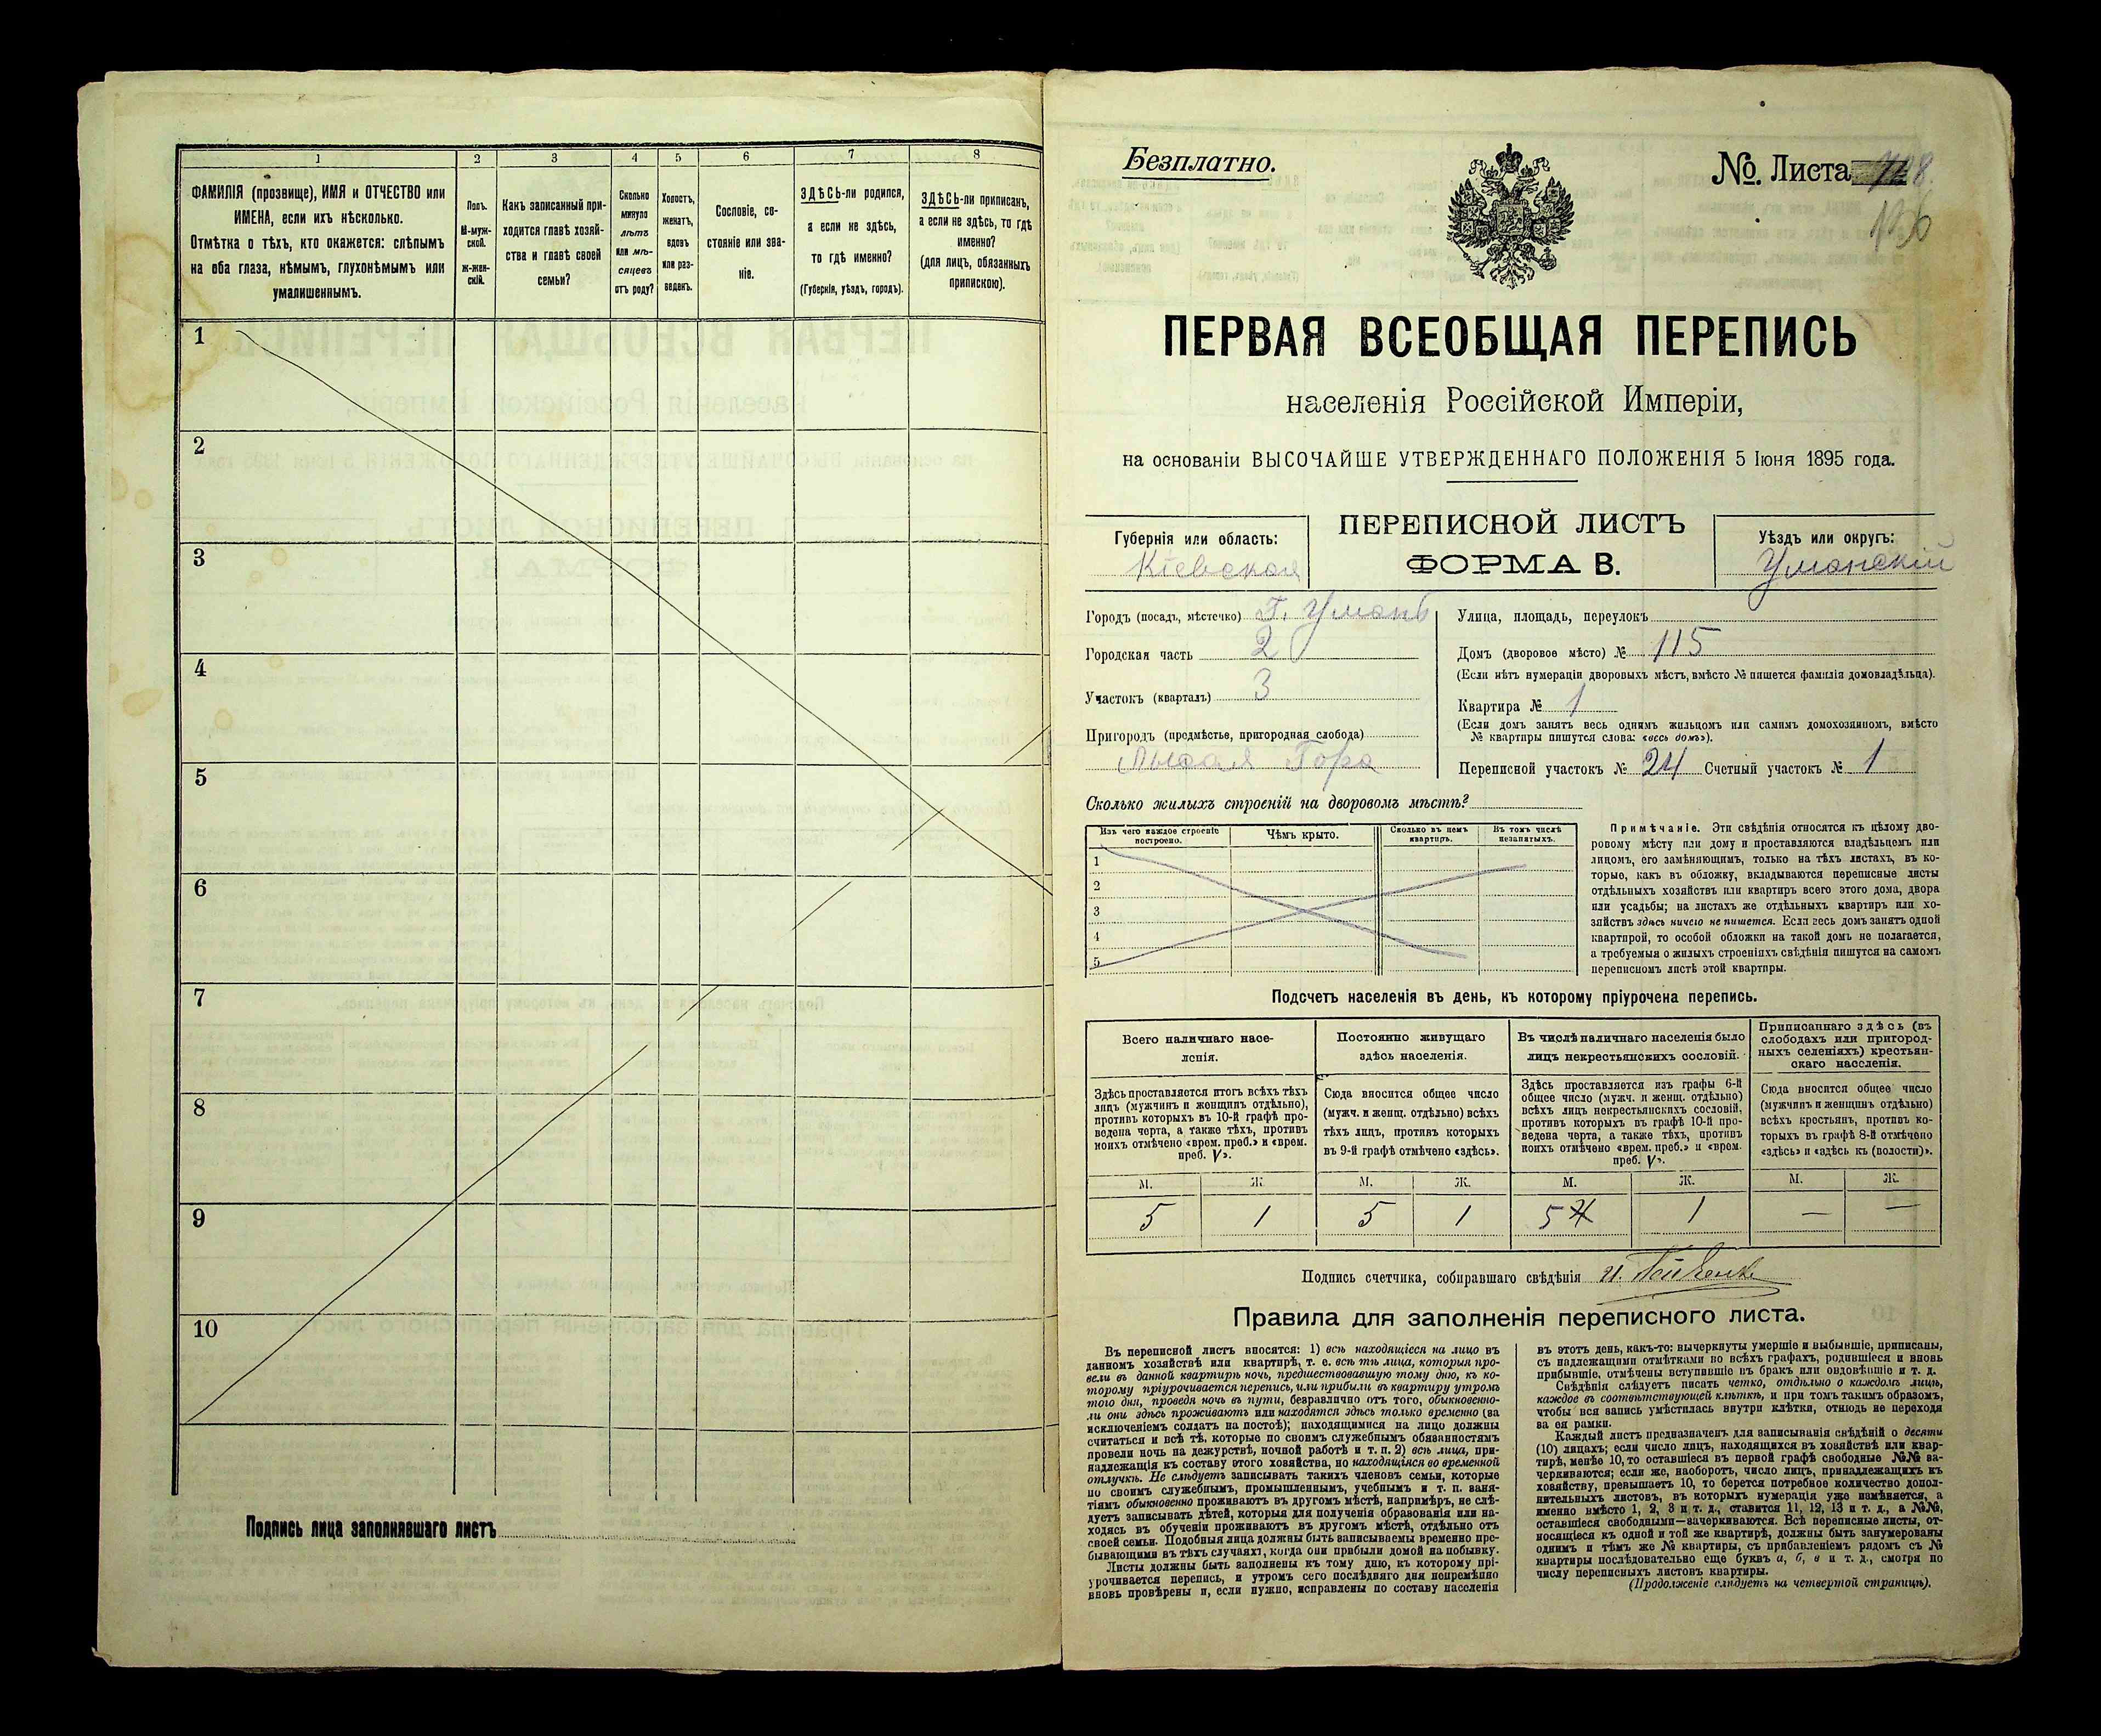 1
2
3
4
5
6
7
8
ФАМИЛІЯ (прозвище), ИМЯ и ОТЧЕСТВО или
ИМЕНА, если ихъ нѣсколько.
Отмѣтка о тѣхъ, кто окажется: слѣпымъ
на оба глаза, нѣмымъ, глухонѣмымъ или
умалишеннымъ.
Полъ.
М-муж-
ской.
Ж-жен-
скій.
Какъ записанный при-
ходится главѣ хозяй-
ства и главѣ своей
семьи?
Сколько
минуло
лѣтъ
или мѣ-
сяцевъ
отъ роду?
Холостъ,
женатъ,
вдовъ
или раз-
веденъ.
Сословіе, со-
стояніе или зва-
ніе.
ЗДѢСЬ-ли родился,
а если не здѣсь,
то гдѣ именно?
(Губернія, уѣздъ, городъ).
ЗДѢСЬ-ли приписанъ,
а если не здѣсь, то гдѣ
именно?
(для лицъ, обязанныхъ
припискою).
1
2
3
4
5
6
7
8
9
10
Подпись лица заполнявшаго листъ
Безплатно.
№ Листа
ПЕРВАЯ ВСЕОБЩАЯ ПЕРЕПИСЬ
населенія Россійской Имперіи,
на основаніи ВЫСОЧАЙШЕ УТВЕРЖДЕННАГО ПОЛОЖЕНІЯ 5 Іюня 1895 года.
Губернія или область:
Кіевская
ПЕРЕПИСНОЙ ЛИСТЪ
ФОРМА В.
Уѣздъ или округъ:
Уманскій
Городъ (посадъ, мѣстечко) Г. Умань
Городская часть 2
Участокъ (кварталъ) 3
Пригородъ (предмѣстье, пригородная слобода)
Лысая Гора
Улица, площадь, переулокъ
Домъ (дворовое мѣсто) № 115
(Если нѣтъ нумераціи дворовыхъ мѣстъ, вмѣсто № пишется фамилія домовладѣльца).
Квартира № 1
(Если домъ занятъ весь однимъ жильцомъ или самимъ домохозяиномъ, вмѣсто
№ квартиры пишутся слова: «весь домъ»).
Переписной участокъ № 24 Счетный участокъ № 1
Сколько жилыхъ строеній на дворовомъ мѣстѣ?
Изъ чего каждое строеніе
построено.
Чѣмъ крыто.
Сколько въ немъ
квартиръ.
Въ томъ числѣ
незанятыхъ.
1
2
3
4
5
Примѣчаніе. Эти свѣдѣнія относятся къ цѣлому дво-
ровому мѣсту или дому и проставляются владѣльцемъ или
лицомъ, его замѣняющимъ, только на тѣхъ листахъ, въ ко-
торые, какъ въ обложку, вкладываются переписные листы
отдѣльныхъ хозяйствъ или квартиръ всего этого дома, двора
или усадьбы; на листахъ же отдѣльныхъ квартиръ или хо-
зяйствъ здѣсь ничего не пишется. Если весь домъ занятъ одной
квартирой, то особой обложки на такой домъ не полагается,
а требуемыя о жилыхъ строеніяхъ свѣдѣнія пишутся на самомъ
переписномъ листѣ этой квартиры.
Подсчетъ населенія въ день, къ которому пріурочена перепись.
Всего наличнаго насе-
ленія.
Постоянно живущаго
здѣсь населенія.
Въ числѣ наличнаго населенія было
лицъ некрестьянскихъ сословій.
Приписаннаго здѣсь (въ
слободахъ или пригород-
ныхъ селеніяхъ) крестьян-
скаго населенія.
Здѣсь проставляется итогъ всѣхъ тѣхъ
лицъ (мужчинъ и женщинъ отдѣльно),
противъ которыхъ въ 10-й графѣ про-
ведена черта, а также тѣхъ, противъ
коихъ отмѣчено «врем. преб.» и «врем.
преб. V».
Сюда вносится общее число
(мужч. и женщ. отдѣльно) всѣхъ
тѣхъ лицъ, противъ которыхъ
въ 9-й графѣ отмѣчено «здѣсь».
Здѣсь проставляется изъ графы 6-й
общее число (мужч. и женщ. отдѣльно)
всѣхъ лицъ некрестьянскихъ сословій,
противъ которыхъ въ графѣ 10-й про-
ведена черта, а также тѣхъ, противъ
коихъ отмѣчено «врем. преб.» и «врем.
преб. V».
Сюда вносится общее число
(мужчинъ и женщинъ отдѣльно)
всѣхъ крестьянъ, противъ ко-
торыхъ въ графѣ 8-й отмѣчено
«здѣсь» и «здѣсь къ (волости)».
М. Ж. М. Ж. М. Ж. М. Ж.
5 1 5 1 5 1 — —
Подпись счетчика, собиравшаго свѣдѣнія
Правила для заполненія переписного листа.
Въ переписной листъ вносятся: 1) всѣ находящіеся на лицо въ
данномъ хозяйствѣ или квартирѣ, т. е. всѣ тѣ лица, которыя про-
вели въ данной квартирѣ ночь, предшествовавшую тому дню, къ ко-
торому пріурочивается перепись, или прибыли въ квартиру утромъ
того дня, проведя ночь въ пути, безразлично отъ того, обыкновенно-
ли они здѣсь проживаютъ или находятся здѣсь только временно (за
исключеніемъ солдатъ на постоѣ); находящимися на лицо должны
считаться и всѣ тѣ, которые по своимъ служебнымъ обязанностямъ
провели ночь на дежурствѣ, ночной работѣ и т. п. 2) всѣ лица, при-
надлежащія къ составу этого хозяйства, но находящіяся во временной
отлучкѣ. Не слѣдуетъ записывать такихъ членовъ семьи, которые
по своимъ служебнымъ, промышленнымъ, учебнымъ и т. п. заня-
тіямъ обыкновенно проживаютъ въ другомъ мѣстѣ, напримѣръ, не слѣ-
дуетъ записывать дѣтей, которыя для полученія образованія или на-
ходясь въ обученіи проживаютъ въ другомъ мѣстѣ, отдѣльно отъ
своей семьи. Подобныя лица должны быть записываемы временно пре-
бывающими въ тѣхъ случаяхъ, когда они прибыли домой на побывку.
Листы должны быть заполнены къ тому дню, къ которому прі-
урочивается перепись, и утромъ сего послѣдняго дня непремѣнно
вновь провѣрены и, если нужно, исправлены по составу населенія
въ этотъ день, какъ-то: вычеркнуты умершіе и выбывшіе, приписаны,
съ надлежащими отмѣтками во всѣхъ графахъ, родившіеся и вновь
прибывшіе, отмѣчены вступившіе въ бракъ или овдовѣвшіе и т. д.
Свѣдѣнія слѣдуетъ писать четко, отдѣльно о каждомъ лицѣ,
каждое въ соотвѣтствующей клѣткѣ, и при томъ такимъ образомъ,
чтобы вся запись умѣстилась внутри клѣтки, отнюдь не переходя
за ея рамки.
Каждый листъ предназначенъ для записыванія свѣдѣній о десяти
(10) лицахъ; если число лицъ, находящихся въ хозяйствѣ или квар-
тирѣ, менѣе 10, то оставшіеся въ первой графѣ свободные №№ за-
черкиваются; если же, наоборотъ, число лицъ, принадлежащихъ къ
хозяйству, превышаетъ 10, то берется потребное количество допол-
нительныхъ листовъ, въ которыхъ нумерація уже измѣняется, а
именно вмѣсто 1, 2, 3 и т. д., ставится 11, 12, 13 и т. д., а №№,
оставшіеся свободными—зачеркиваются. Всѣ переписные листы, от-
носящіеся къ одной и той же квартирѣ, должны быть занумерованы
однимъ и тѣмъ же № квартиры, съ прибавленіемъ рядомъ съ №
квартиры послѣдовательно еще буквъ а, б, в и т. д., смотря по
числу переписныхъ листовъ квартиры.
(Продолженіе слѣдуетъ на четвертой страницѣ).